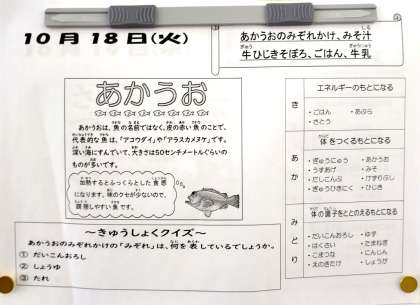 10月18日(火)
あかうおのみぞれかけ、みそ汁
牛ひじきそぼろ、ごはん、牛乳
あかうお
あかうおは、魚の名前ではなく、皮の赤い魚のことで、
代表的な魚は、「アコウダイ」や「アラスカメヌケ」です。
深い海にすんでいて、大きさは50センチメートルぐらいの
ものが多いです。
加熱するとふっくらとした食感
になります。味のクセが少ないので、
調理しやすい魚です。
～きゅうしょくクイズ～
あかうおのみぞれかけの「みぞれ」は、何を表しているでしょうか。
① だいこんおろし
② しょうゆ
③ たれ
き
エネルギーのもとになる
・ごはん ・あぶら
・さとう
あか
体をつくるもとになる
・ぎゅうにゅう ・あかうお
・うすあげ ・みそ
・だしこんぶ ・けずりぶし
・ぎゅうひきにく ・ひじき
みどり
体の調子をととのえるもとになる
・だいこんおろし ・ゆず
・はくさい ・たまねぎ
・こまつな ・にんじん
・えのきたけ ・しょうが